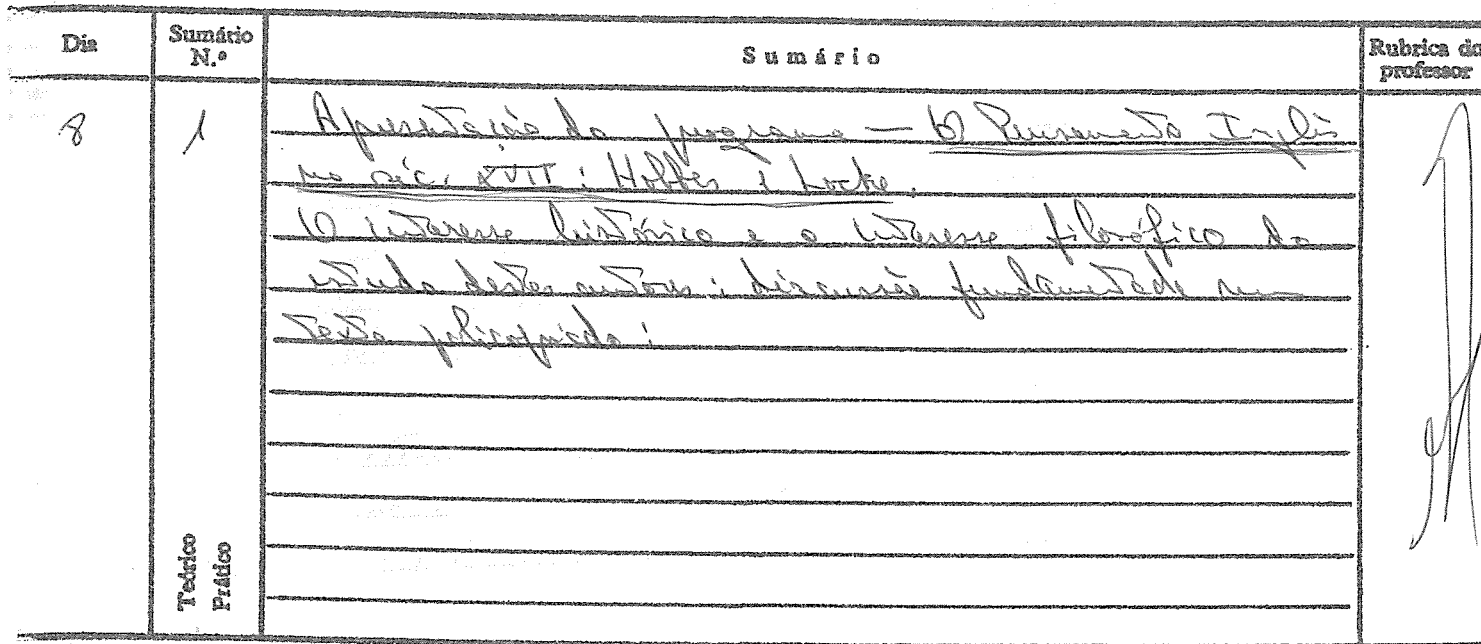 Dia
Sumário N.º
Sumário
Rubrica do professor
8
1
Apresentação do programa — O Pensamento Inglês
no séc. XVII: Hobbes e Locke.
O interesse histórico e o interesse filosófico do
estudo destes autores: discussão fundamentada num
texto policopiado:
Teórico
Prático